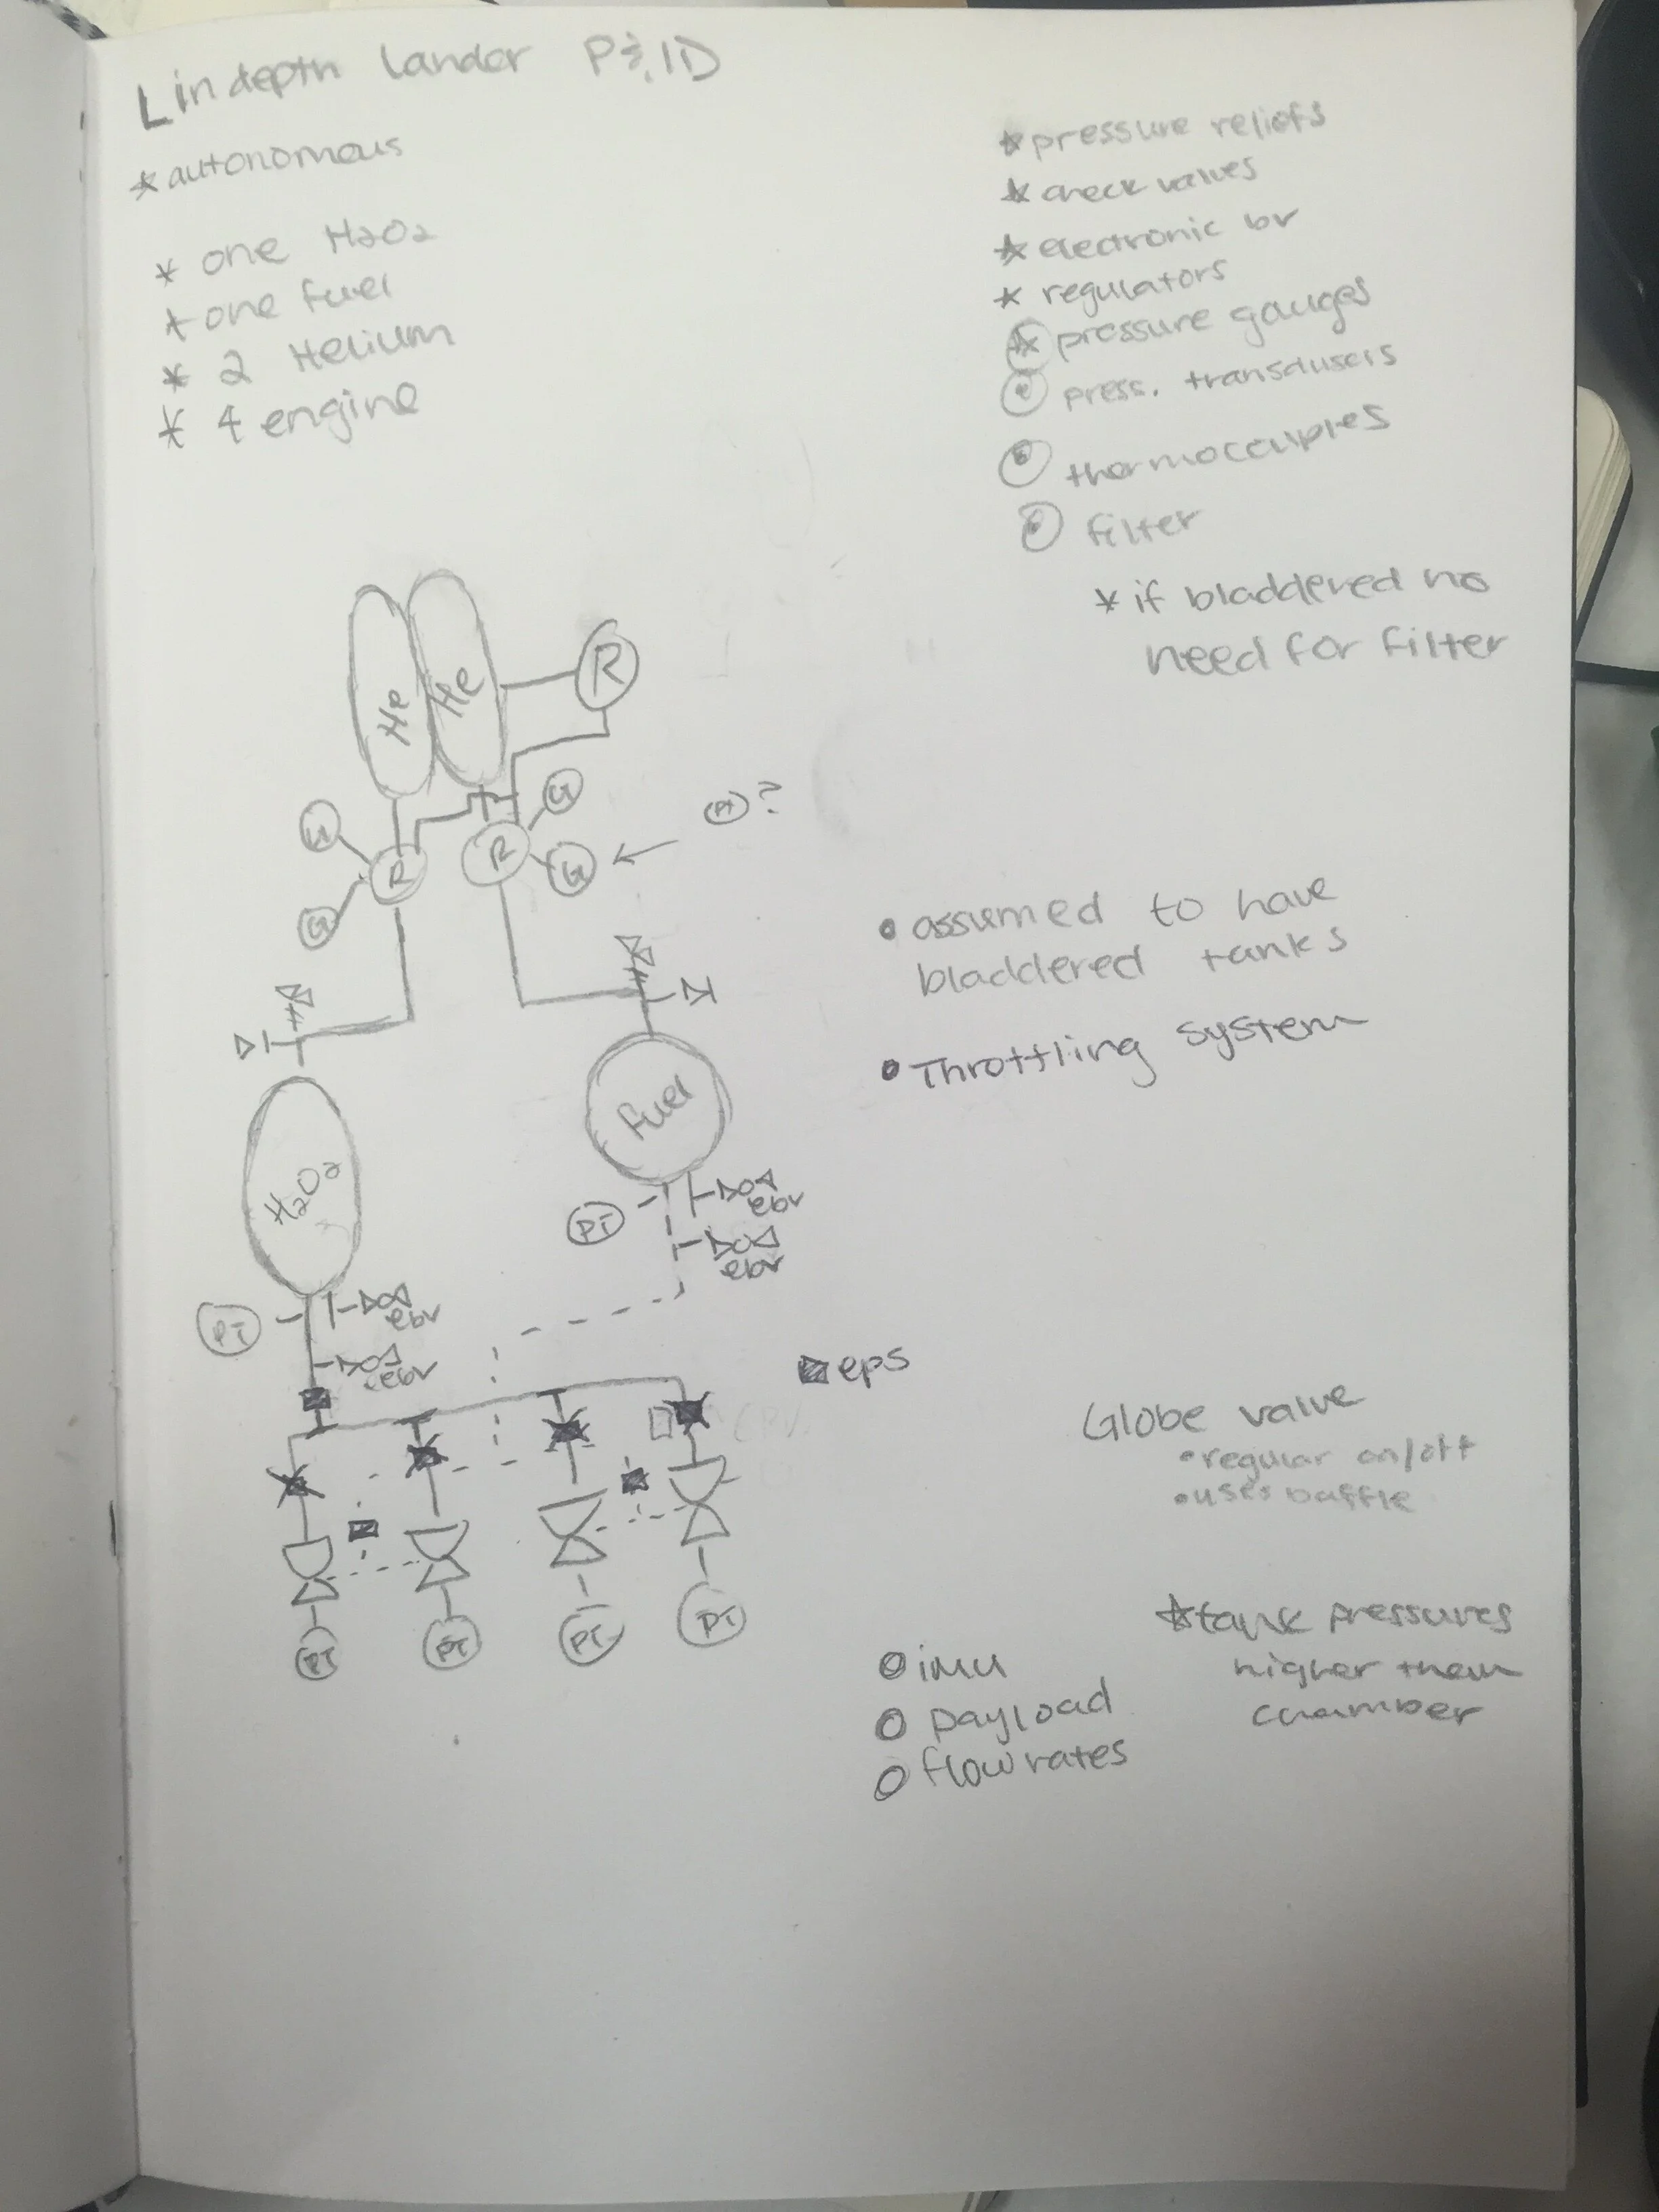 Lindepth Lander P&ID
* autonomous
* one H2O2
* one fuel
* 2 Helium
* 4 engine
* pressure reliefs
* check valves
* electronic bv
* regulators
* pressure gauges
press. transdusers
thermocouples
filter
* if bladdered no
need for filter
He
He
R
G
G
R
R
G
G
PT ?
• assumed to have
bladdered tanks
• Throttling system
Fuel
H2O2
PT
ebv
ebv
PT
ebv
ebv
eps
Globe valve
• regular on/off
• uses baffle
PT
PT
PT
PT
* tank pressures
higher then
chamber
imu
payload
flowrates